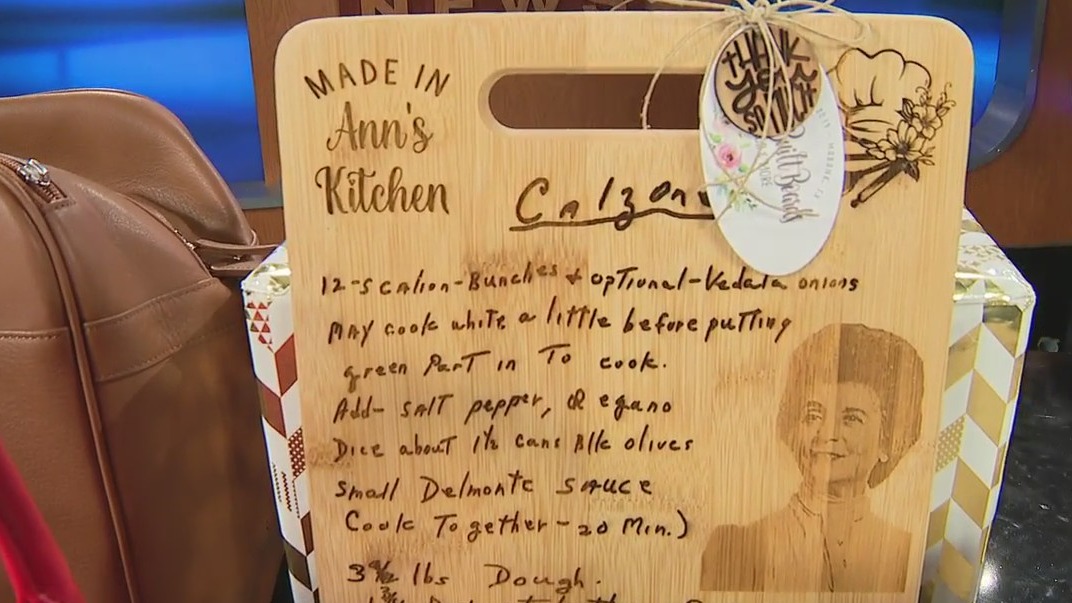 NEWS
MADE IN
Ann's
Kitchen
THANK
you
SO
Built Boards
& MORE
Calzone
12-Scalion-Bunches & opTional-Vedala onions
MAY cook white a little before putting
green ParT in To cook.
Add- SAlT pepper, Oregano
Dice about 1½ cans Blk olives
Small Delmonte SAuce
Cook Together - 20 Min.)
lbs Dough.